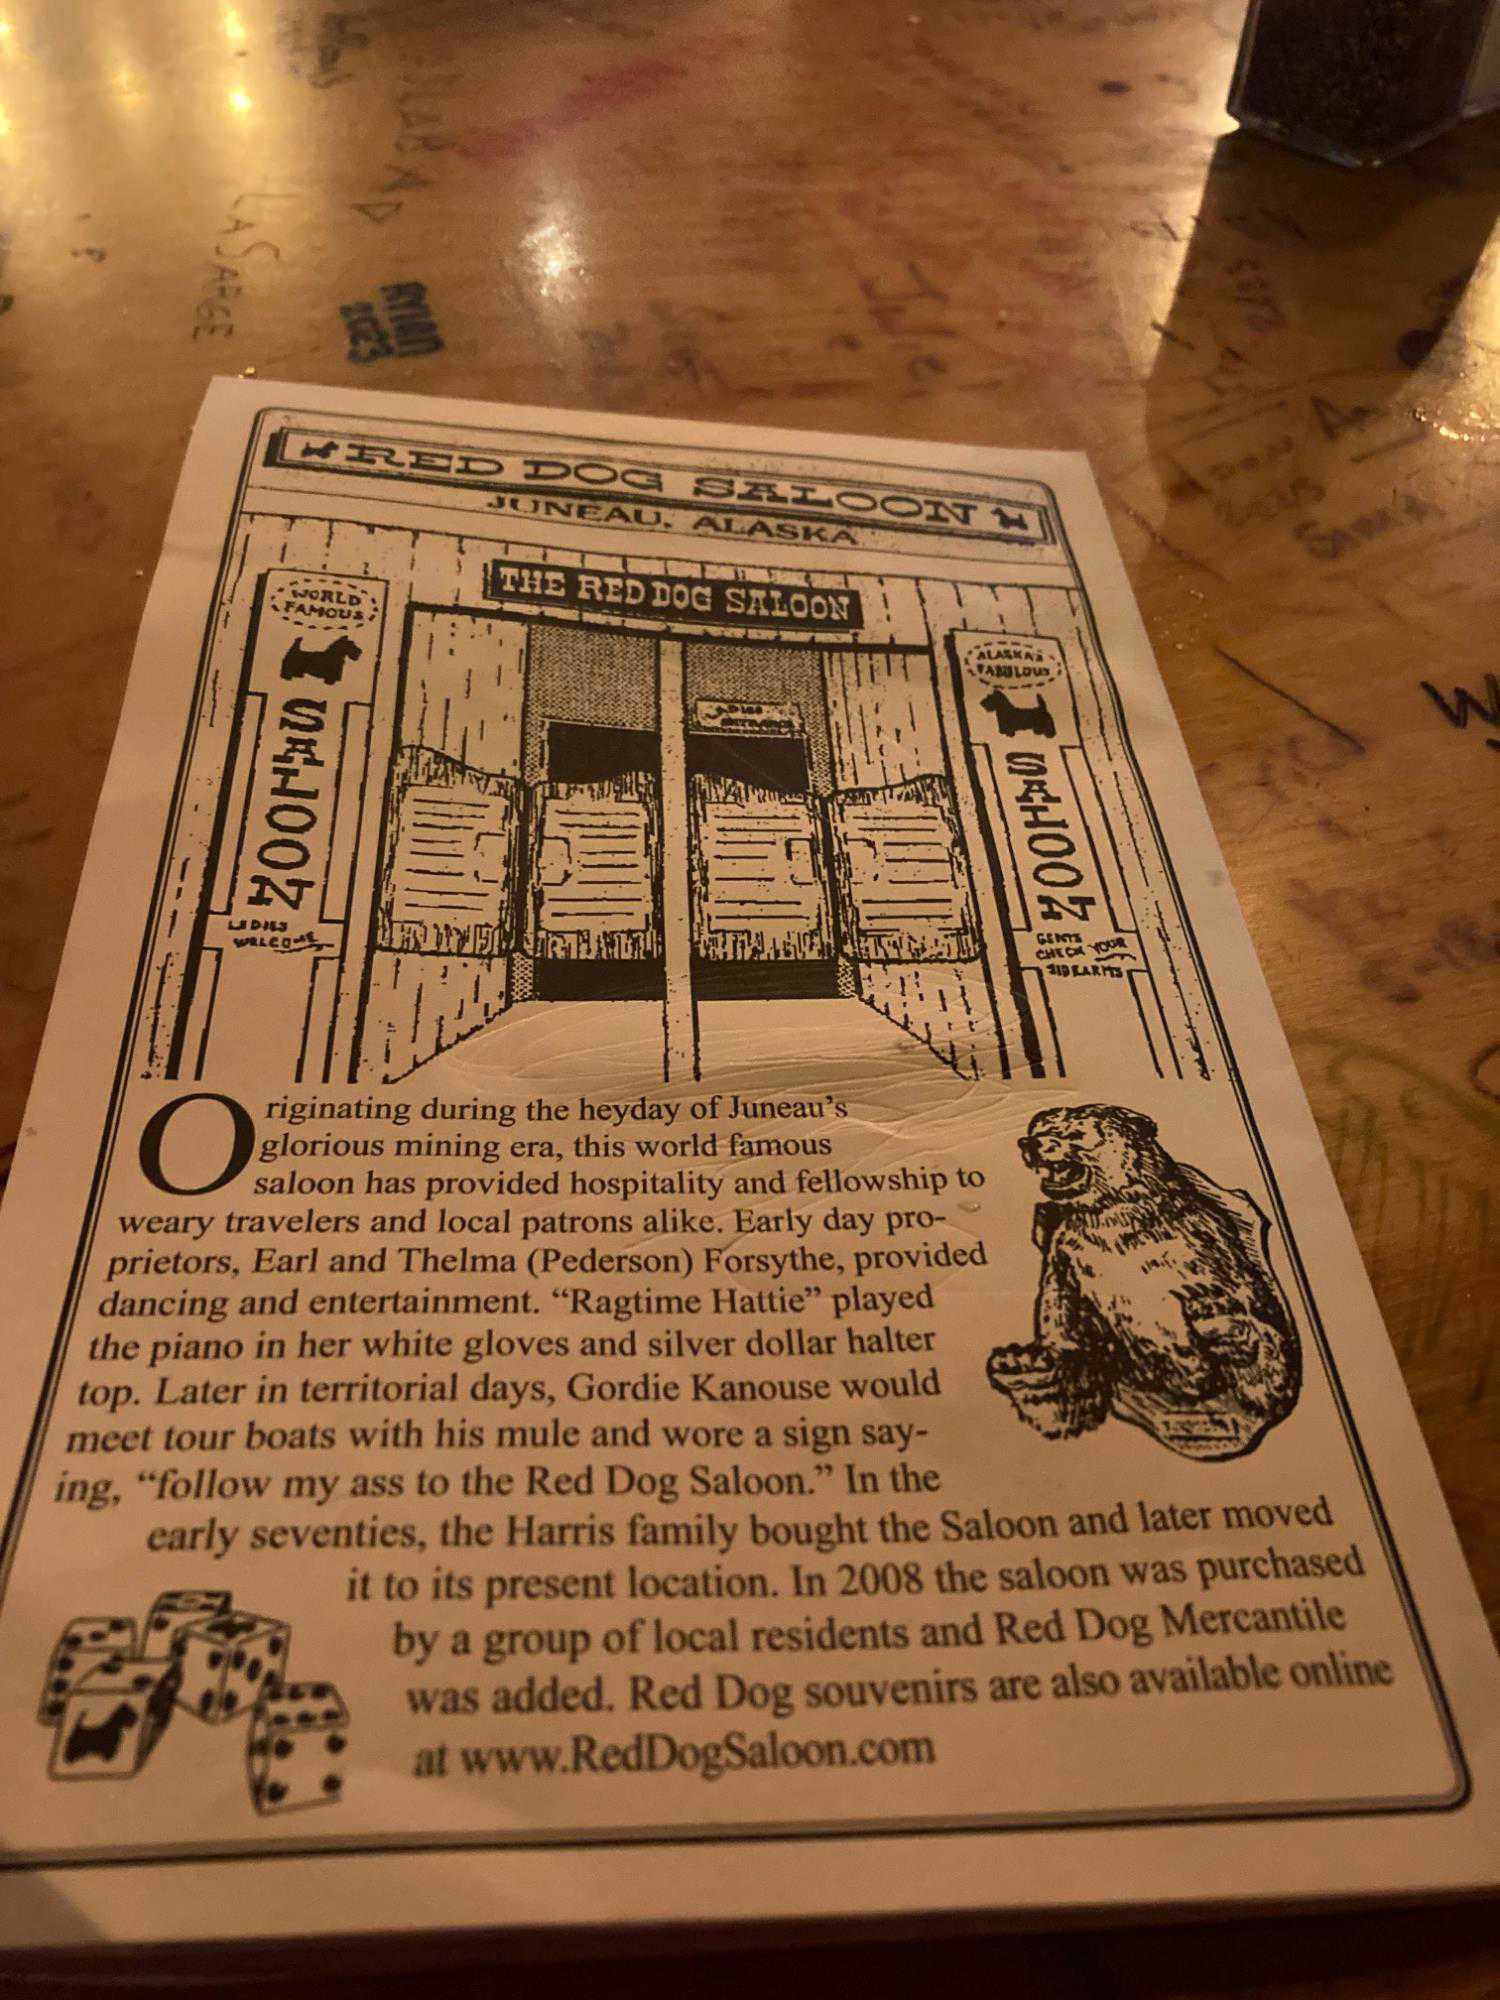 LASARGE
RYAN
2023
RED DOG SALOON
JUNEAU, ALASKA
THE RED DOG SALOON
WORLD
FAMOUS
SALOON
LADIES
WELCOME
LADIES
ENTRANCE
ALASKA'S
FABULOUS
SALOON
GENTS
CHECK YOUR
SIDEARMS
Originating during the heyday of Juneau's
glorious mining era, this world famous
saloon has provided hospitality and fellowship to
weary travelers and local patrons alike. Early day pro-
prietors, Earl and Thelma (Pederson) Forsythe, provided
dancing and entertainment. “Ragtime Hattie” played
the piano in her white gloves and silver dollar halter
top. Later in territorial days, Gordie Kanouse would
meet tour boats with his mule and wore a sign say-
ing, “follow my ass to the Red Dog Saloon.” In the
early seventies, the Harris family bought the Saloon and later moved
it to its present location. In 2008 the saloon was purchased
by a group of local residents and Red Dog Mercantile
was added. Red Dog souvenirs are also available online
at www.RedDogSaloon.com